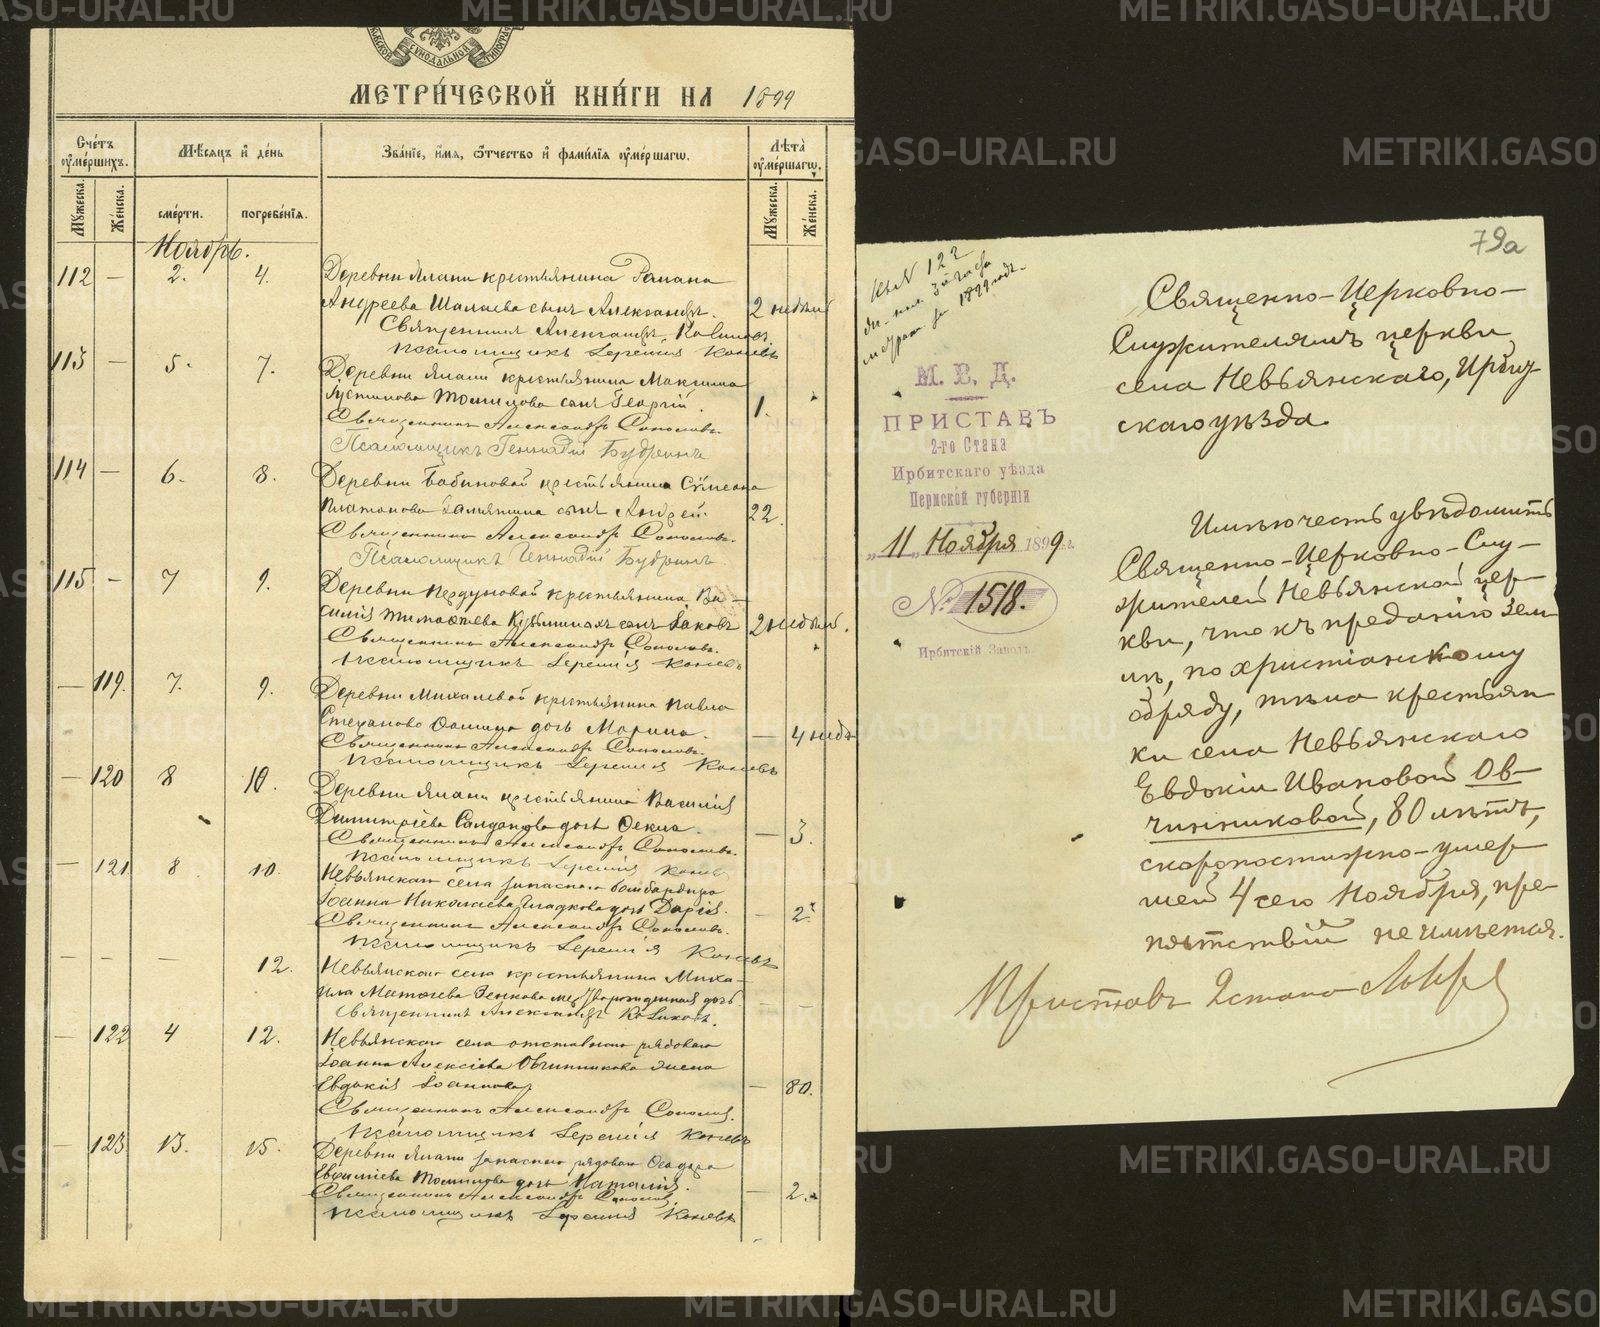 СУНОДАЛЬНОЙ
МЕТРИ́ЧЕСКОЙ КНИ́ГИ НА 1899
Сче́тъ оумéршихъ.
Мѣ́сяцъ и́ де́нь
Зва́нїе, и́мя, о́тчество и́ фами́лїя оумéршагω.
Лѣта̀ оумéршагω.
Мꙋжеска.
Же́нска.
смéрти.
погребéнїя.
Мꙋжеска.
Же́нска.
Ноябрь.
112 — 2. 4. Деревни Ялани крестьянина Романа
Андреева Шалаева сынъ Александръ. 2 недѣли
Священникъ Александръ
Псаломщикъ Іеремія Коневъ
113 — 5. 7. Деревни Ялани крестьянина Максима
Іустинова Томилова сынъ Георгій. 1.
Священникъ Александръ Соколовъ.
Псаломщикъ Геннадій Будринъ
114 — 6. 8. Деревни Бабиновой крестьянина Сѵмеона
Платонова Замятина сынъ Андрей. 22.
Священникъ Александръ Соколовъ.
Псаломщикъ Геннадій Будринъ
115 — 7 9. Деревни крестьянина Ва-
силія Тимофеева сынъ Іаковъ 2 недѣли.
Священникъ Александръ Соколовъ.
Псаломщикъ Іеремія Коневъ
— 119. 7. 9. Деревни Михалевой крестьянина Павла
Степанова Ѳомина дочь Марина. — 4 недѣ
Священникъ Александръ Соколовъ.
Псаломщикъ Іеремія Коневъ
— 120 8 10. Деревни Ялани крестьянина Василія
Димитріева Салданова дочь Ѳекла. — 3.
Священникъ Александръ Соколовъ.
Псаломщикъ Іеремія Коневъ
— 121 8 10. Невьянскаго села запаснаго бомбардира
Іоанна Николаева Гладкова дочь Дарія. — 2.
Священникъ Александръ Соколовъ.
Псаломщикъ Іеремія Коневъ
— — — 12. Невьянскаго села крестьянина Миха-
ила Матѳеева Зенкова мертворожденная дочь. — —
Священникъ Александръ
— 122 4 12. Невьянскаго села отставного рядоваго
Іоанна Алексіева Овчинникова жена
Евдокія Іоаннова — 80.
Священникъ Александръ Соколовъ.
Псаломщикъ Іеремія Коневъ
— 123 13. 15. Деревни Ялани запаснаго рядоваго Ѳеодора
Евфиміева Томилова дочь Наталія. — 2.
Священникъ Александръ Соколовъ
Псаломщикъ Іеремія Коневъ
79а
Къ № 122
3й части
метрики за 1899 годъ.
М. В. Д.
ПРИСТАВЪ
2-го Стана
Ирбитскаго уѣзда
Пермской губерніи
„11„ Ноября 1899 г.
№ 1518.
Ирбитскій Заводъ
Священно-Церковно-
Служителямъ церкви
села Невьянскаго, Ирбит
скаго уѣзда.
Имѣю честь увѣдомить
Священно-Церковно-Слу-
жителей Невьянской цер-
кви, что къ преданію зем
лѣ, по христіанскому
обряду, тѣла крестьян
ки села Невьянскаго
Евдокіи Ивановой Ов-
чинниковой, 80 лѣтъ,
скоропостижно-умер
шей 4 сего Ноября, пре-
пятствій не имѣется.
Приставъ 2 стана
METRIKI.GASO-URAL.RU